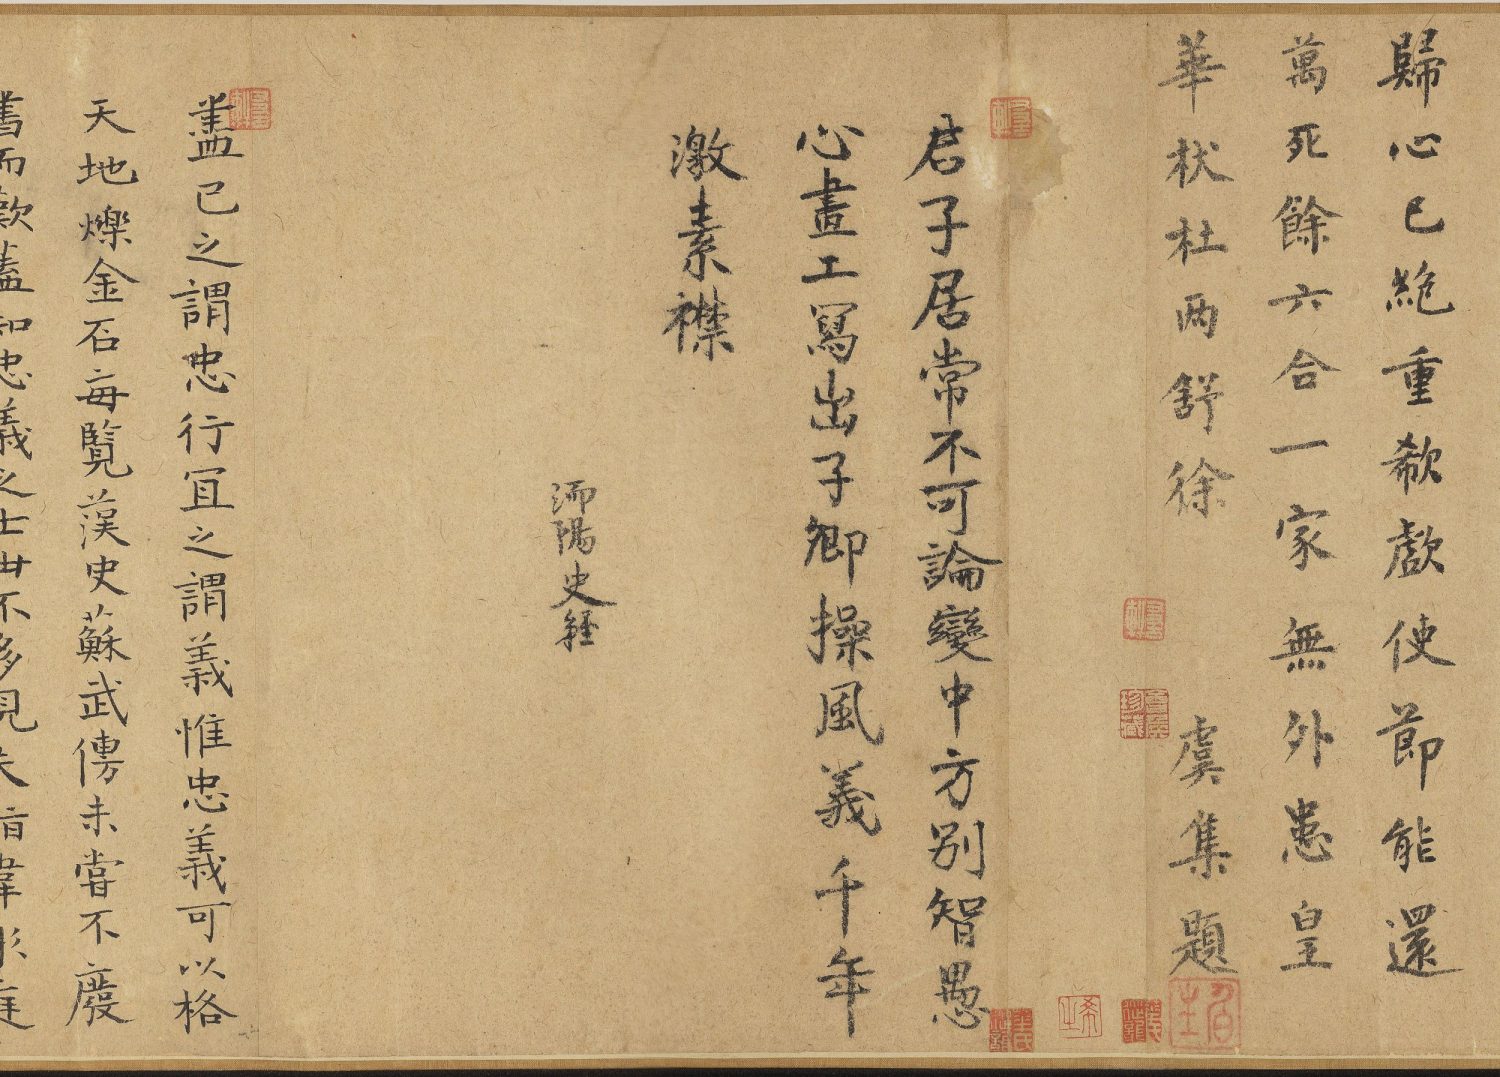 歸心已絕重欷歔使節能還
萬死餘六合一家無外患皇
華杕杜两舒徐
虞集題
君子居常不可論變中方別智愚
心畫工寫出子卿操風義千年
激素襟
沛陽史
盡已之謂忠行冝之謂義惟忠義可以格
天地爍金石每覽漢史蘇武傳未嘗不廢
書而歎蓋知忠義之士丗不多見矣